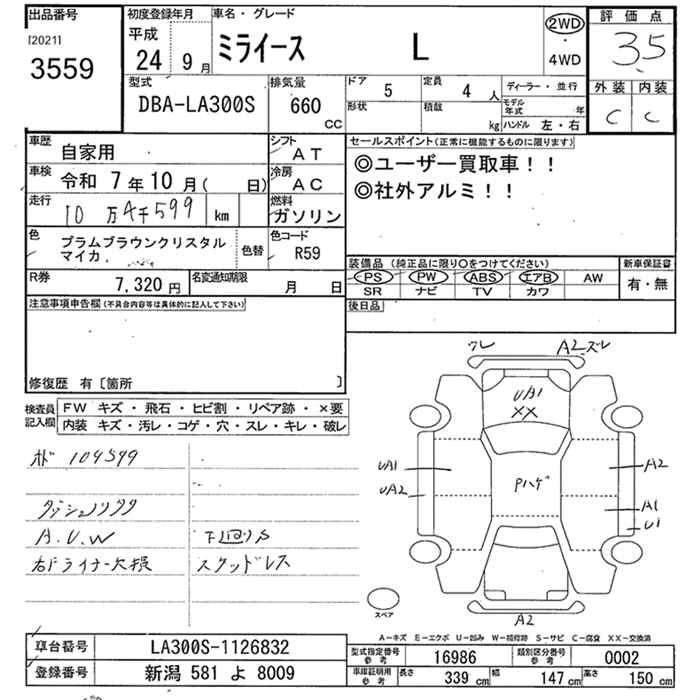 出品番号
[2021]
3559
初度登録年月
平成
24 9月
車名・グレード
ミライース L
2WD
・
4WD
評価点
3.5
外装 内装
C C
型式
DBA-LA300S
排気量
660
CC
ドア
5
定員
4人
形状
積載
kg
ディーラー・並行
モデル年式 年
ハンドル 左・右
車歴
自家用
シフト
AT
車検
令和 7年10月( 日)
冷房
AC
走行
10万4千599 km
燃料
ガソリン
色
プラムブラウンクリスタル
マイカ
色替
色コード
R59
R券
7,320円
名変通知期限
月 日
セールスポイント(正常に機能するものに限ります)
◎ユーザー買取車!!
◎社外アルミ!!
装備品 (純正品に限り○をつけてください)
PS PW ABS エアB AW
SR ナビ TV カワ
新車保証書
有・無
後日品
注意事項申告欄(不具合内容等は具体的に記入して下さい)
修復歴 有〔箇所 〕
検査員
記入欄
FW キズ・飛石・ヒビ割・リペア跡・×要
内装 キズ・汚レ・コゲ・穴・スレ・キレ・破レ
104599
A.U.W
下回りS
スタッドレス
ワレ
A2 ズレ
UA1
XX
UA1
UA2
Pハゲ
A2
A1
U1
A2
スペア
A−キズ E−エクボ U−凹み W−補修跡 S−サビ C−腐食 XX−交換済
車台番号
LA300S-1126832
登録番号
新潟 581 よ 8009
型式指定番号
参考
16986
類別区分番号
参考
0002
車庫証明用
参考
長さ 339 cm
幅 147 cm
高さ 150 cm